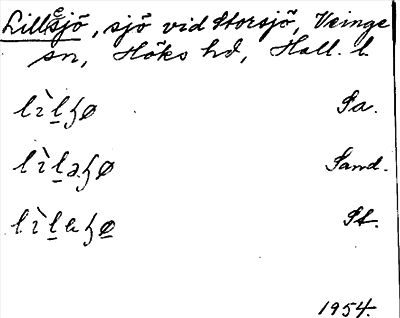 Lillesjö, sjö vid Storsjö, Veinge
sn, Höks hd, Hall. l.
lìl̲ɧø Pa.
lìl̲əɧø Sand.
lìl̲eɧø̲ St.
1954.